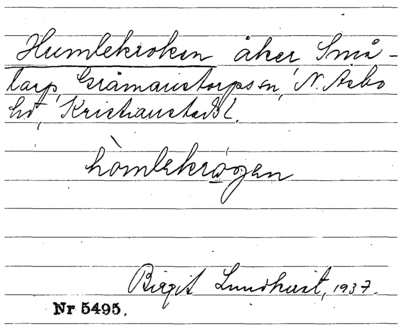 Humlekroken åker Små-
tarp, Gråmanstorps sn, N. Åsbo
hd, Kristianstads l.
hòmlekrogen
Birgit Lundkvist, 1937.
Nr 5495.